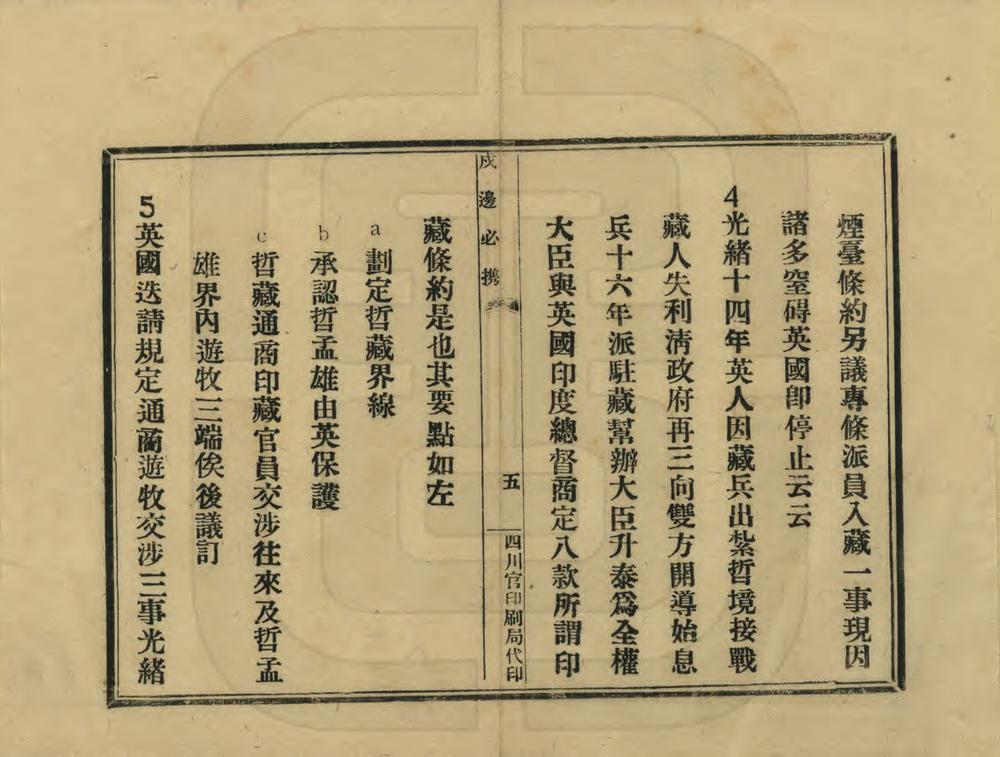 煙臺條約另議專條派員入藏一事現因
諸多窒碍英國卽停止云云
4光緒十四年英人因藏兵出紮哲境接戰
藏人失利淸政府再三向雙方開導始息
兵十六年派駐藏幫辦大臣升泰爲全權
大臣與英國印度總督商定八款所謂印
戍邊必携
五
四川官印刷局代印
藏條約是也其要點如左
a劃定哲藏界線
b承認哲孟雄由英保護
c哲藏通商印藏官員交涉往來及哲孟
雄界內遊牧三端俟後議訂
5英國迭請規定通商遊牧交涉三事光緒